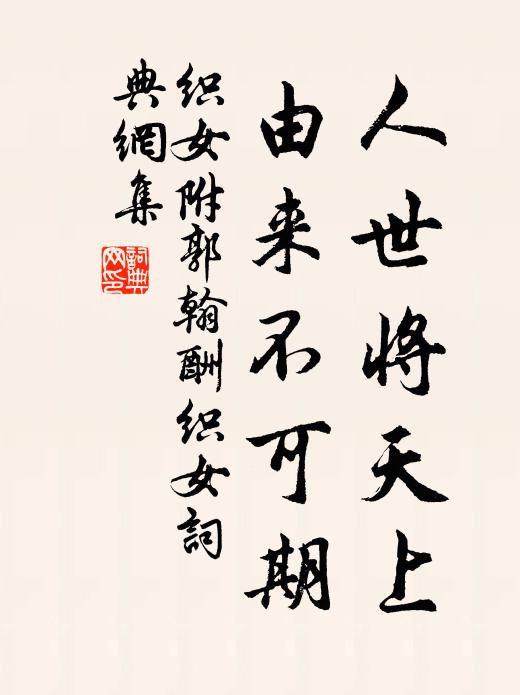 人世将天上
由来不可期
织女附郭翰酬织女詞
典網集
詞典网印